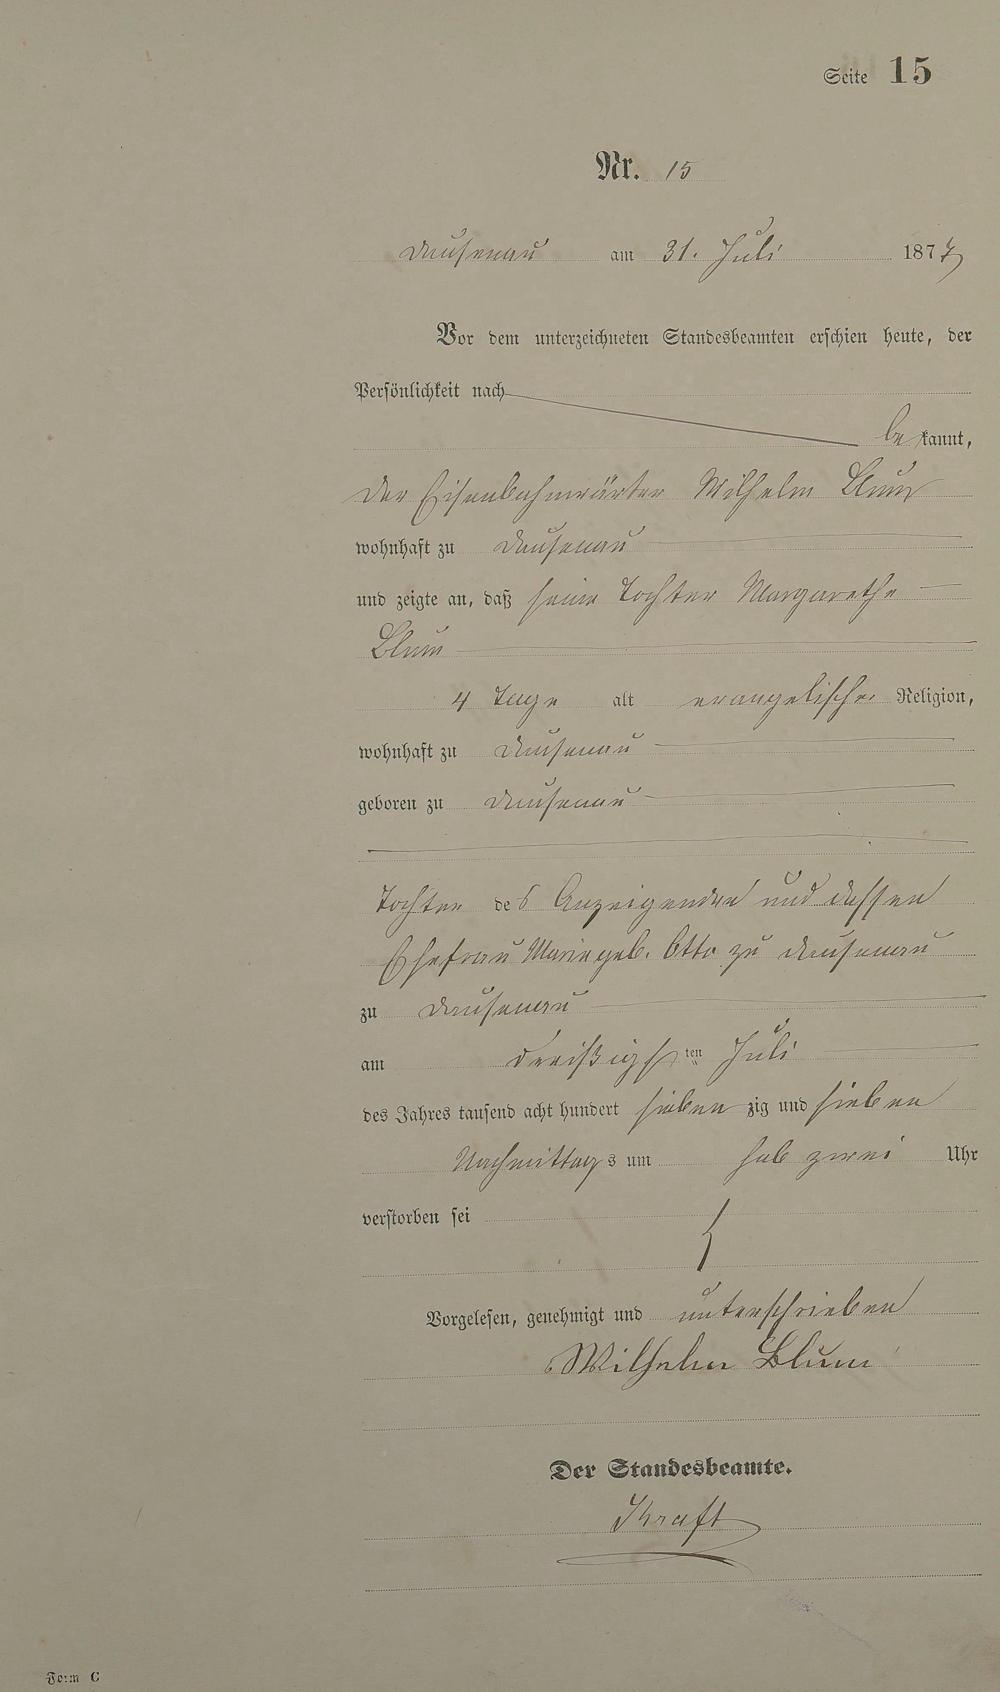 Seite 15
Nr. 15
Dausenau am 31. Juli 1877
Vor dem unterzeichneten Standesbeamten erschien heute, der
Persönlichkeit nach
be kannt,
der Eisenbahnwärter Wilhelm Blum
wohnhaft zu Dausenau
und zeigte an, daß seine Tochter Margarethe
Blum
4 Tage alt evangelischer Religion,
wohnhaft zu Dausenau
geboren zu Dausenau
Tochter des Anzeigenden und dessen
Ehefrau Marie geb. Otto zu Dausenau
zu Dausenau
am dreißigsten Juli
des Jahres tausend acht hundert sieben zig und sieben
Nachmittags um halb zwei Uhr
verstorben sei
Vorgelesen, genehmigt und unterschrieben
Wilhelm Blum
Der Standesbeamte.
Kraft
Form C